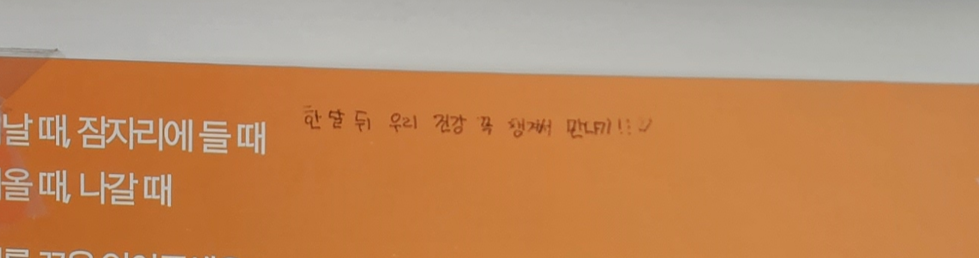 날 때, 잠자리에 들 때
한 달 뒤 우리 건강 꼭 챙겨서 만나기!!
올 때, 나갈 때